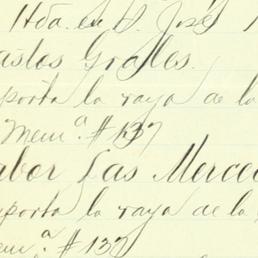 Hda. en S. José
astos Grales.
porta la raya de la
Mem.ª # 137
abor Las Merce
porta la raya de la
em.ª # 137